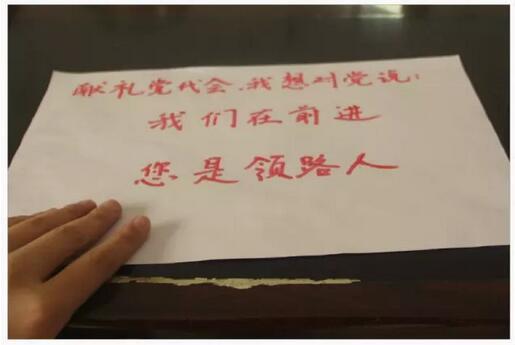 献礼党代会、我想对党说：
我们在前进
您是领路人